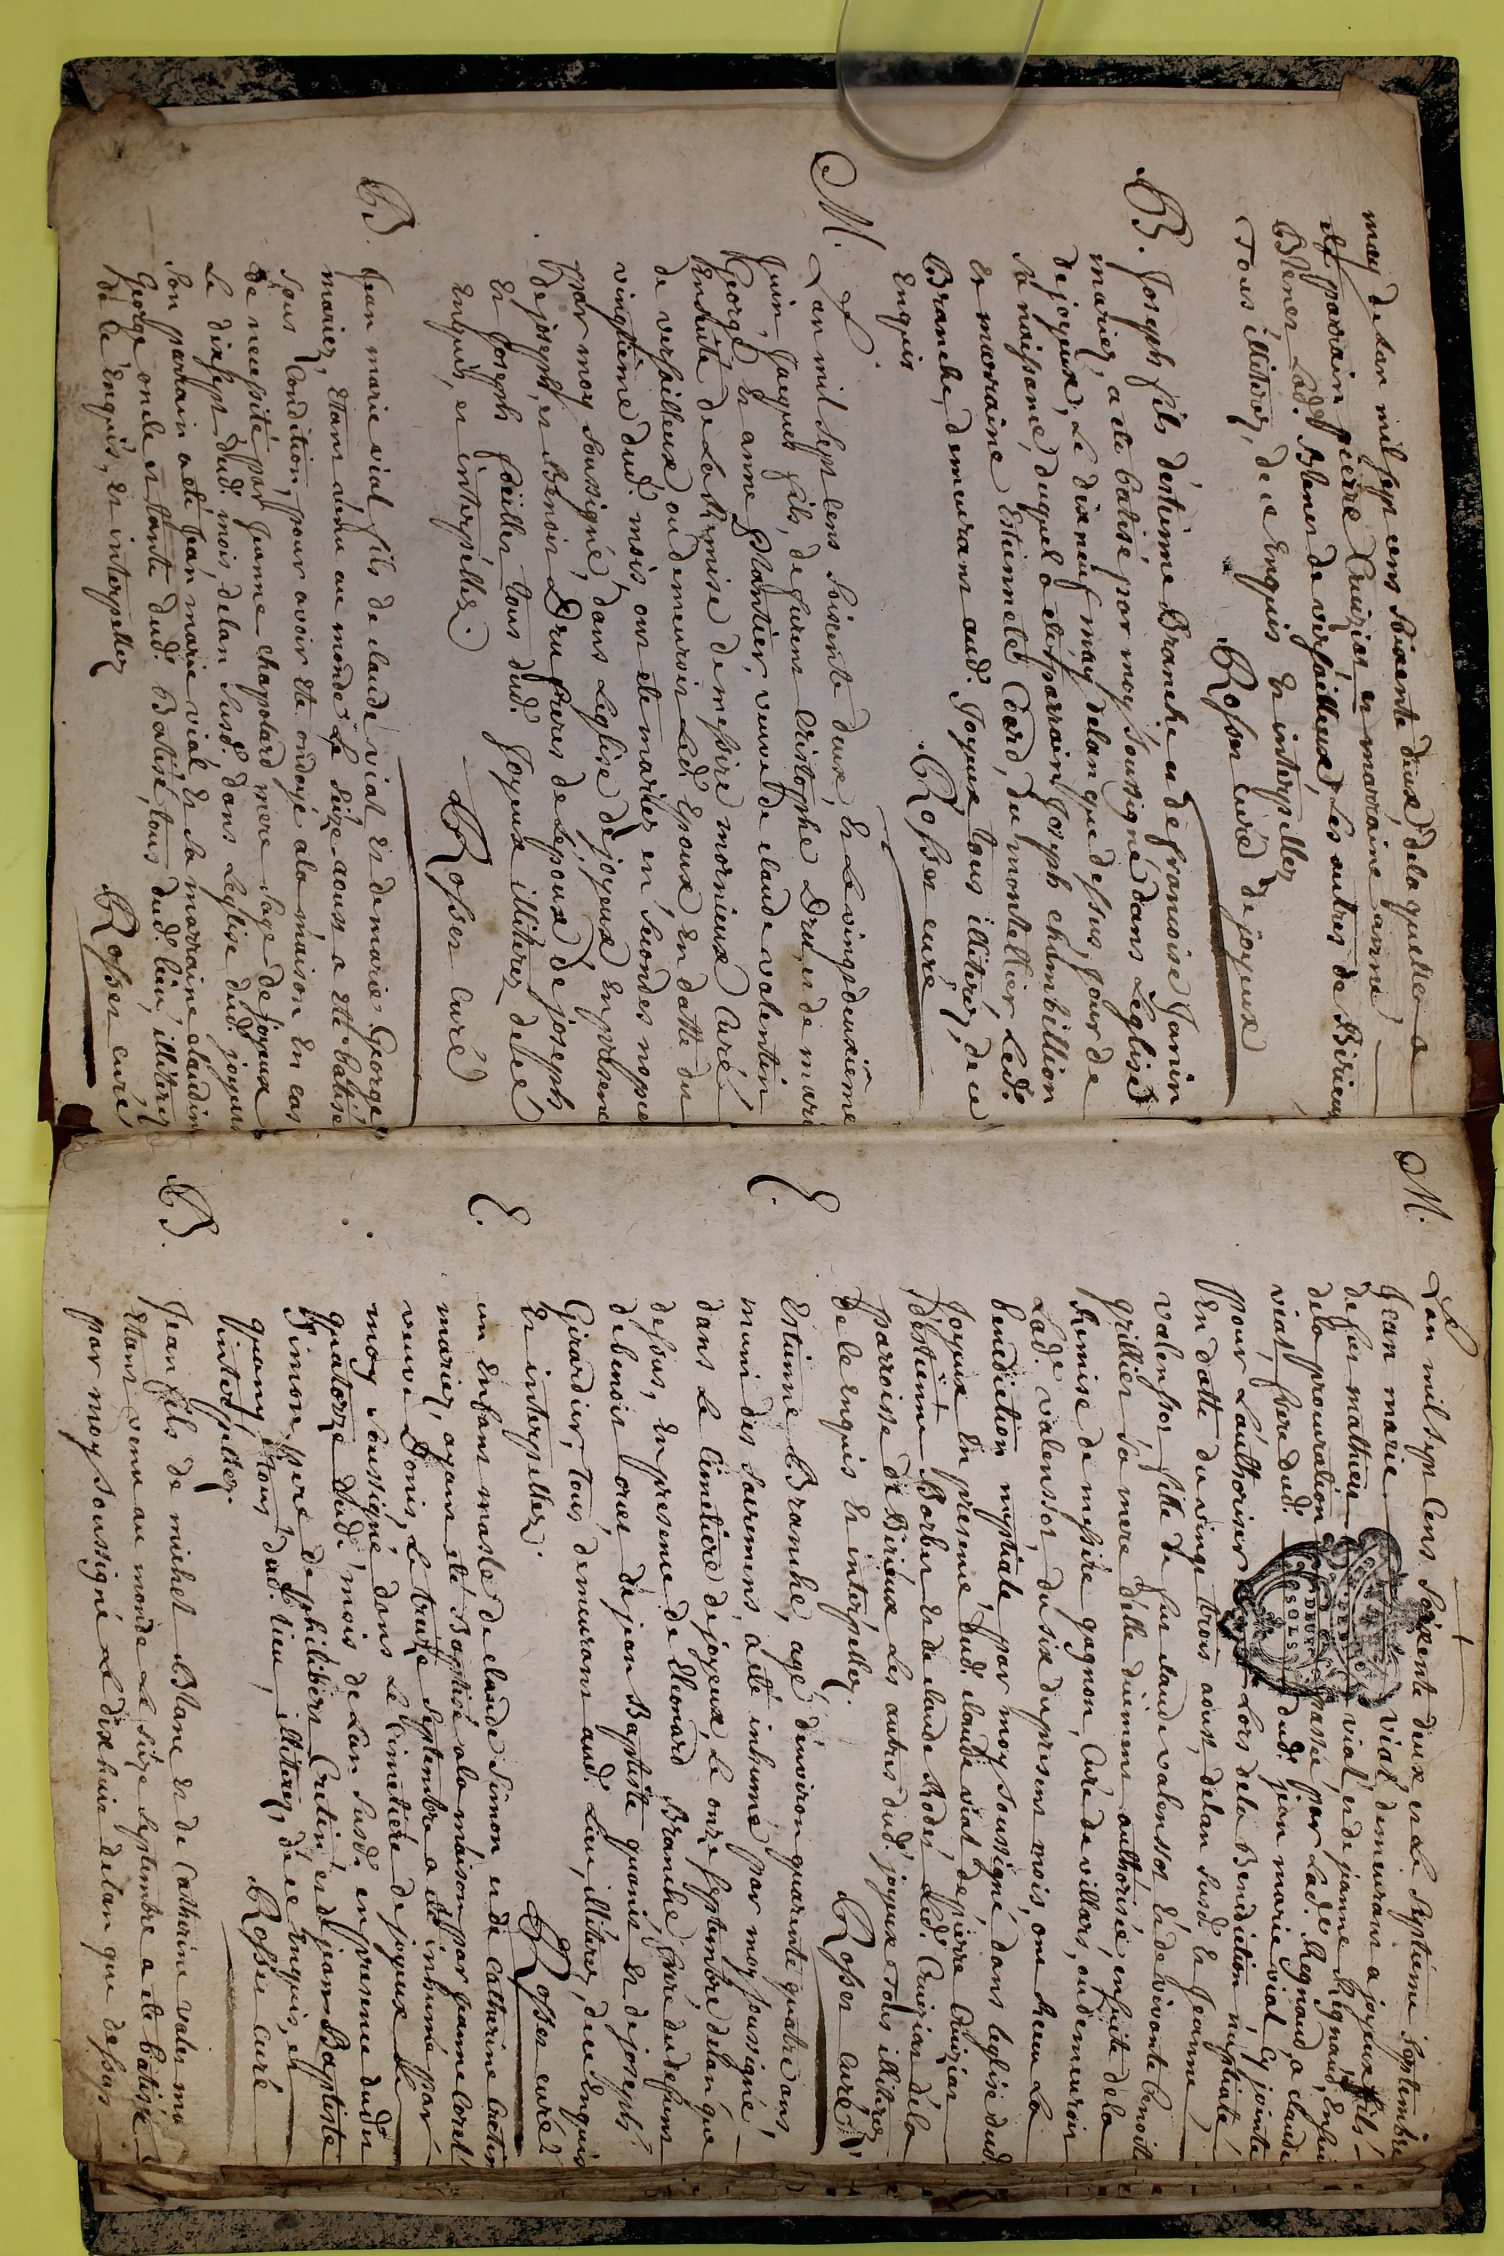 may de lan mil sept cens soixente deux de la quelle a
ete parrain pierre Cruizias et marraine anne
Blenes Lad. Blenes de versailleux Les autres de Birieux
Tous illiterez, de ce Enquis Et interpellez
Rosser curé de joyeux
B. Joseph fils d'estienne Branche et de francoise Janin
mariez, a ete batisé par moy soussigné dans Leglise
de joyeux, Le dixneuf may delan que dessus, jour de
sa naissance, duquel a ete parrain Joseph chambillion
et marraine Estiennete Card, du montellier Led.
Branche, demeurans aud. Joyeux tous illiterez, de ce
Enquis
Rosser curé
M. Lan mil sept cens soixente deux, Et Le vingtdeuxieme
Juin, Jacques fils, de furent Cristophe Dru, et de marie
George Et anne Plantier, veuve de claude valentin
Ensuite de La Remise de messire mornieux Curé
de versailleux, ou demeuroit Led. Epoux, En datte du
vingtième dud. mois, ont ete mariez en secondes nopces
par moy soussigné, dans Leglise de joyeux En presence
de joseph, et Benoit Dru freres de L'epoux de joseph
Et Joseph tous dud. Joyeux illiterez de ce
Enquis, et interpellez.
Rosser Curé
B. Jean marie vial fils de claude vial et de marie George
mariez, Etant venu au monde Le seize aoust a Ette batisé
sous Condition, pour avoir Ete ondoyé a la maison En cas
de necessité par Jeanne chapolard mere sage de joyeux
Le dixsept dud. mois delan susd. dans Leglise dud. joyeux
Son parrain a eté Jean marie vial Et sa marraine claudine
George oncle et tante dud. Batisé, tous dud. lieu, illiterez
de ce Enquis, et interpellez
Rosser curé
M. Lan mil sept Cens soixente deux, et Le septième septembre
Jean marie vial demeurans a joyeux fils
de feu mathieu vial, et de jeanne Regnaud, Ensuite
dela procuration passée par Lad. Regnaud, a claude
vial, frere dud. dud. jean marie vial Cy jointe
pour L'authoriser Lors dela Benediction nuptiale
En datte du vingt trois aoust, delan susd. Et Jeanne
valensot, fille de feu claude valensot, Et de vivante benoite
grillier sa mere d'elle duement authorisée, ensuite dela
Remise de messire gagnon, Curé de villars, ou demeuroit
Lad. valensot, du six du present mois, ont Receu La
benediction nuptiale par moy soussigné dans leglise dud.
Joyeux En presence, dud. claude vial de pierre Cruizias
d'estienne Barbet et de claude Rodet Led. Cruizias dela
parroisse de Birieux Les autres dud. joyeux tous illiterez
de ce Enquis et interpellez
Rosser Curé
E. Estienne Branche, agé, d'environ quarente quatre ans,
muni des sacremens, a eté inhumé par moy soussigné,
dans Le Cimetiere de joyeux, Le onze septembre delan que
dessus, En presence de Leonard Branche frere du defunt
de benoit oruel de jean Baptiste et de joseph
Girardier, tous demeurans aud. Lieu, illiterez, de ce Enquis
et interpellez.
Rosser curé
E. un Enfant masle de claude Simon et de catherine Cretin
mariez, ayans eté Baptisé a la maison par jeanne Coret
veuve Donis, Le treize septembre a ete inhumé par
moy soussigné dans Le Cimetiere de joyeux Le
quatorze dud. mois de Lan susd. en presence dudit
Simon pere de philibert Cretin, et de jean Baptiste
tous dud. lieu, illiterez, de ce Enquis, et
interpellez.
Rosser Curé
B. Jean fils de michel Blanc Et de Catherine valet ma
Etant venu au monde Le seize septembre a ete batisé
par moy soussigné Le dixhuit delan que dessus